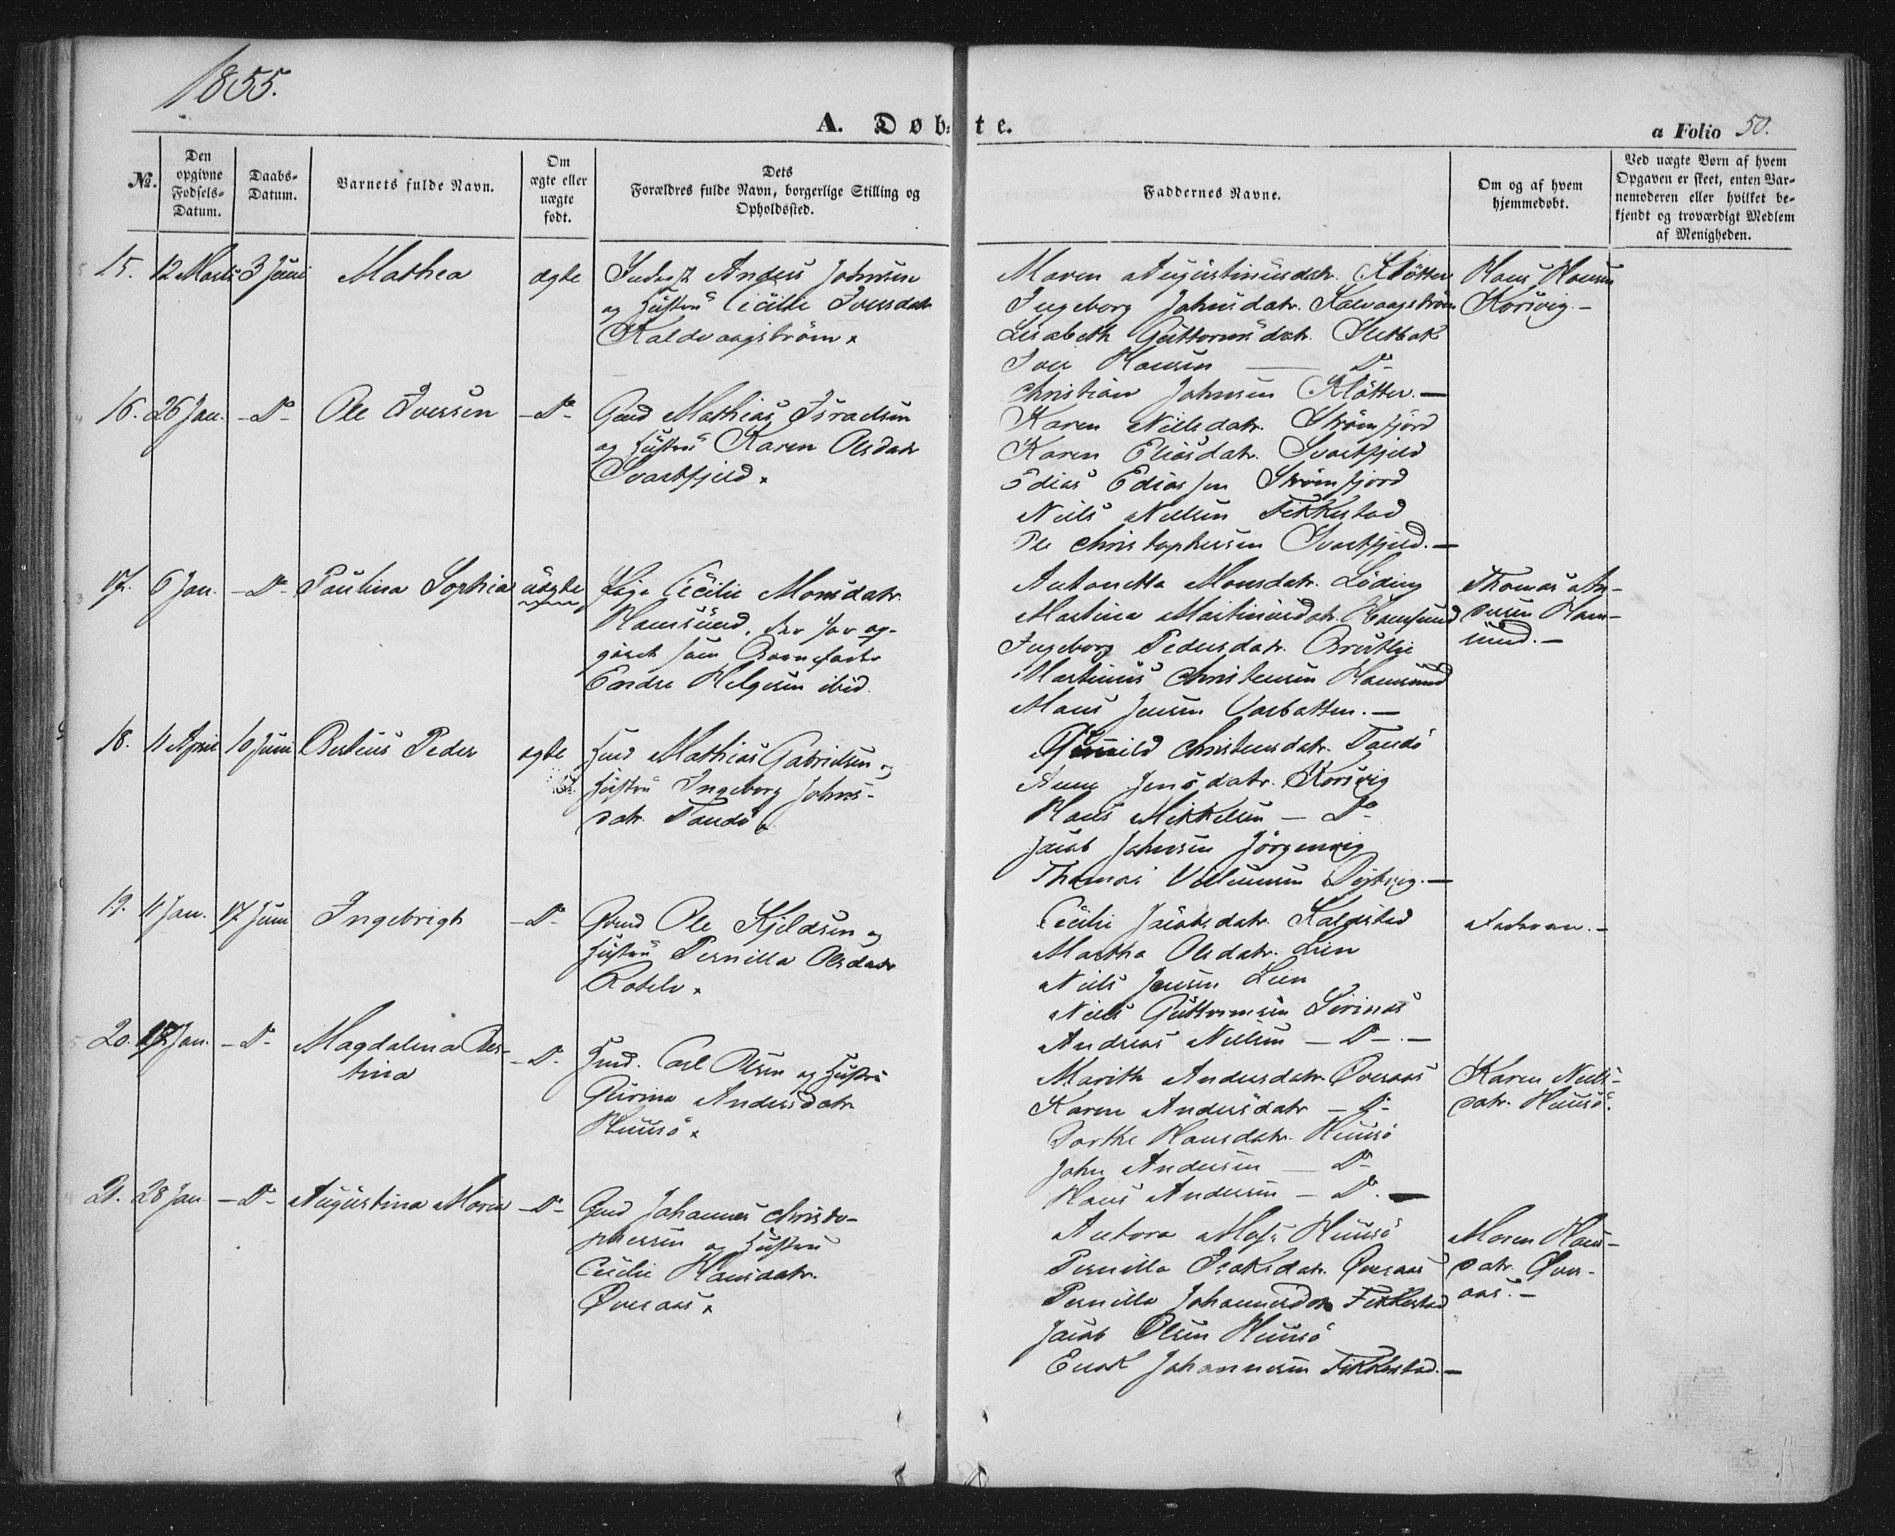 1855.
A. Døbte.
a Folio 50.
No.
Den opgivne Fødsels-Datum.
Daabs-Datum.
Barnets fulde Navn.
Om ægte eller uægte født.
Dets Forældres fulde Navn, borgerlige Stilling og Opholdssted.
Faddernes Navne.
Om og af hvem hjemmedøbt.
Ved uægte Børn af hvem Opgaven er skeet, enten Barnemoderen eller hvilket bekjendt og troværdigt Medlem af Menigheden.
15. 12 Marts 3 Juni Mathea ægte
Anders Johnsen
og Hustru Cecilie Iversdatr
Kaldvaagstrøm
Maren Augustinusdatr. Kløtten
Ingeborg Johnsdatr. Kalvaagstrøm
Lisabeth Guttormsdatr. Sletbak
Iver Hansen — Do
Christian Johnsen Kløtten. —
Hans Hansen
Korsvig. —
16. 26 Jan. — Do — Ole Iversen — Do —
Gmd Mathias Israelsen
og Hustru Karen Olsdatr
Svartfjeld
Karen Nielsdatr. Strømfjord
Karen Eliasdatr. Svartfjeld
Edias Ediassen Strømfjord
Niels Nielsen Fikkestad
Ole Christophersen Svartfjeld. —
17. 6 Jan. — Do — Paulina Sophia uægte
Pige Cecilie Monsdatr.
Hamsund, der har op-
givet som Barnefader
Endre Helgesen ibid.
Antonetta Monsdatr. Løding
Martina Martinusdatr. Hamsund
Ingeborg Pedersdatr.
Martinus Christensen Hamsund
Hans Jensen
Thomas An-
dersen Ham-
sund. —
18. 11 April 10 Juni Berteus Peder ægte
Hmd Mathias Gabrielsen og
Hustru Ingeborg Johns-
datr. Tandø
Gunild Christensdatr. Tandø
Anne Jensdatr. Korsvig
Hans Mikkelsen — Do
Jacob Johnsen Jørgenvig
Thomas
19. 11 Jan. 17 Juni Ingebrigt — Do —
Gmd Ole Kjeldsen og
Hustru Pernilla Olsdatr
Cecilie Jacobsdatr. Kaldstad
Martha Olsdatr. Lien
Niels Jensen Lien
Niels Guttormsen
Andreas Nielsen — Do —. —
Faderen. —
20. Jan. — Do — Magdalena Ber-
tina — Do —
Hmd. Carl Olsen og Hustru
Gurina Andersdatr
Huusø
Marith Andersdatr. Øveraas
Karen Andersdatr — Do —
Dorthe Hansdatr. Huusø
John Andersen — Do
Hans Andersen — Do. —
Karen Niels-
datr. Huusø.
21. 28 Jan — Do — Augustina Maria — Do —
Gmd Johannes Christo-
phersen og Hustru
Cecilie Hansdatr.
Øveraas
Antora Huusø
Pernilla Isaksdatr. Øveraas
Pernilla Johannesdatr Fikkestad
Jacob Olsen Huusø
Enok Johannesen Fikkestad. —
Maren Hans-
datr. Øver-
aas. —